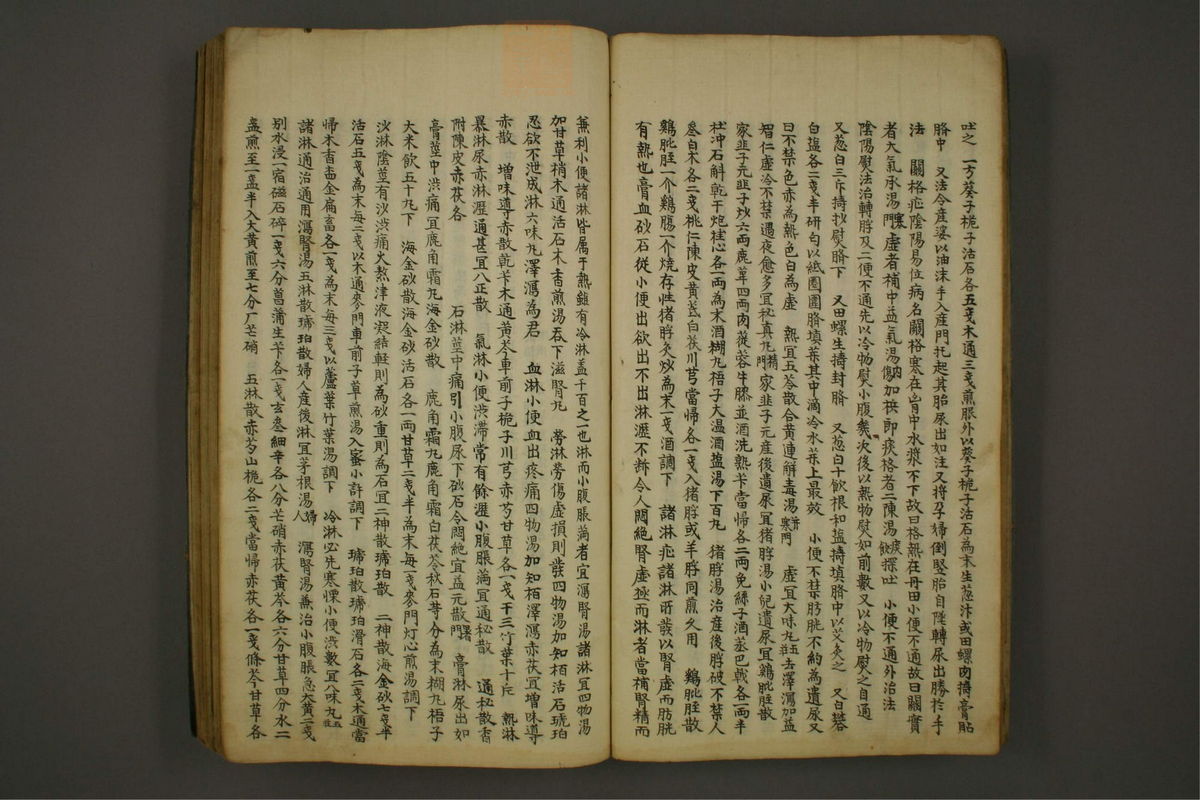 吐之 一方葵子梔子活石各五戔木通三戔煎服外以葵子梔子活石為末生葱汁或田螺肉搗膏貼
臍中 又法令産婆以油沫手入産門托起其胎尿出如注又将孕婦倒竪胎自陞轉尿出勝於手
法 關格疝陰陽易位病名關格寒在肯中水漿不下故曰格熱在丹田小便不通故曰關實
者大氣承湯門寒虛者補中益氣湯内加梹即痰格者二陳湯痰飲探吐 小便不通外治法
陰陽熨法治轉脬及二便不通先以冷物熨小腹幾次後以熱物熨如前數又以冷物熨之自通
又葱白三斤搗炒熨臍下 又田螺生搗封臍 又葱白十飲根和塩搗填臍中以艾灸之 又白礬
白塩各二戔半研勻以紙圈圍臍填藥其中滴冷水藥上最效 小便不禁膀胱不約為遺尿又
曰不禁色赤為熱色白為虛 熱宜五苓散合黄連觧毒湯寒門 虛宜大味丸去澤瀉加益
智仁虛冷不禁遇夜愈多宜秘真丸門精家韭子元産後遺尿宜猪脬湯小兒遺尿宜鷄肶胵散
家韭子元韭子炒六兩鹿茸四兩肉蓯蓉牛膝並酒洗熟卞當帰各二兩免絲子酒蒸巴戟各一兩半
杜冲石斛乾干炮桂心各一兩為末酒糊丸梧子大温酒塩湯下百丸 猪脬湯治産後脬破不禁人
叄白木各二戔桃仁陳皮黄芪白茯川芎當帰各一戔入猪脬或羊脬同煎久用 鷄肶胵散
鷄肶胵一介鷄腸一介燒存性猪脬灸炒為末一戔酒調下 諸淋疝諸淋所發以腎虛而肪胱
有熱也膏血砂石從小便出欲出不出淋瀝不斷令人悶絶腎虛極而淋者當補腎精而
兼利小便諸淋皆属于熱雖有冷淋盖千百之一也淋而小腹脹滿者宜瀉腎湯諸淋宜四物湯
加甘草梢木通活石木香煎湯吞下滋腎丸 勞淋勞傷虛損則發四物湯加知栢活石琥珀
忍欲不泄成淋六味丸澤瀉為君 血淋小便血出疼痛四物湯加知栢澤瀉赤茯宜増味導
赤散 増味導赤散乾卞木通黄芩車前子梔子川芎赤芍甘草各一戔干三竹葉十斥 熱淋
暴淋尿赤淋瀝通甚宜八正散 氣淋小便渋滞常有餘瀝小腹脹滿宜通秘散 通秘散香
附陳皮赤茯各 石淋莖中痛引小腹尿下砂石令悶絶宜益元散門暑 膏淋尿出如
膏莖中渋痛宜鹿角霜丸海金砂散 鹿角霜丸鹿角霜白茯苓秋石等分為末糊丸梧子
大米飲五十丸下 海金砂散海金砂活石各一兩甘草二戔半為末每一戔麥門灯心煎湯調下
沙淋陰莖有沙渋痛火熬津液凝結軽則為砂重則為石宜二神散琥珀散 二神散海金砂七戔半
活石五戔為末每二戔以木通麥門車前子草煎湯入蜜小許調下 琥珀散琥珀滑石各二戔木通當
帰木香欝金扁畜各一戔為末每三戔以蘆葉竹葉湯調下 冷淋必先寒慄小便渋數宜八味丸
諸淋通治通用瀉腎湯五淋散琥珀散婦人産後淋宜茅根湯婦人 瀉腎湯兼治小腹脹急大黄二戔
別水浸一宿磁石碎一戔六分菖蒲生卞各一戔玄叄細辛各八分芒硝赤茯黄芩各六分甘草四分水二
盞煎至一盞半入大黄煎至七分厂芒硝 五淋散赤芍山梔各二戔當帰赤茯各一戔條芩甘草各